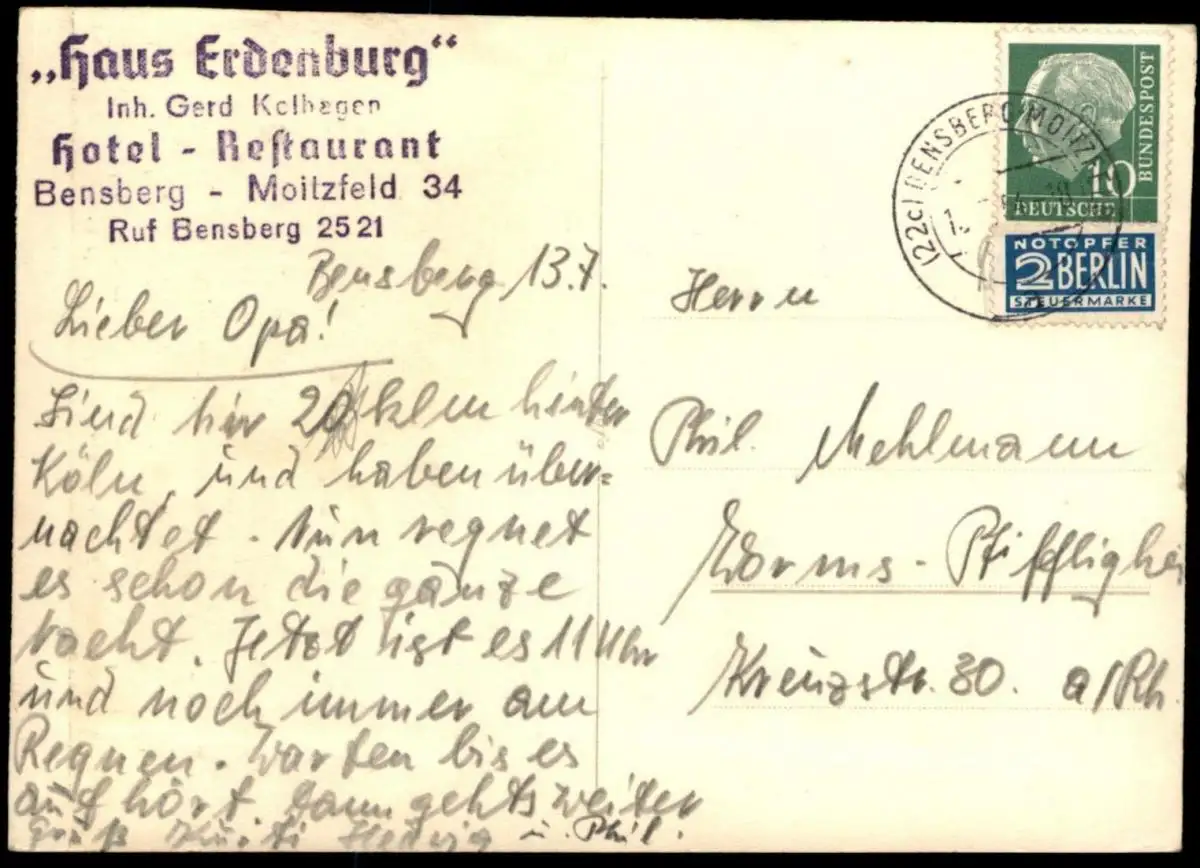 „Haus Erdenburg“
Inh. Gerd Kolhagen
Hotel - Restaurant
Bensberg - Moitzfeld 34
Ruf Bensberg 2521
Bensberg 13.7.
Lieber Opa!
Sind hir 20 klm hinter
Köln, und haben über=
nachtet. Nun regnet
es schon die ganze
Nacht. Jetzt ist es 11 Uhr
und noch immer am
Regnen. Warten bis es
auf hört. dann gehts weiter
Gruß Hedwig u. Phil.
(22c) BENSBERG-MOITZ
BUNDESPOST
10
DEUTSCHE
NOTOPFER
2 BERLIN
STEUERMARKE
Herrn
Phil. Mehlmann
Worms - Pfifflighei
Kreuzstr. 30. a/Rh.